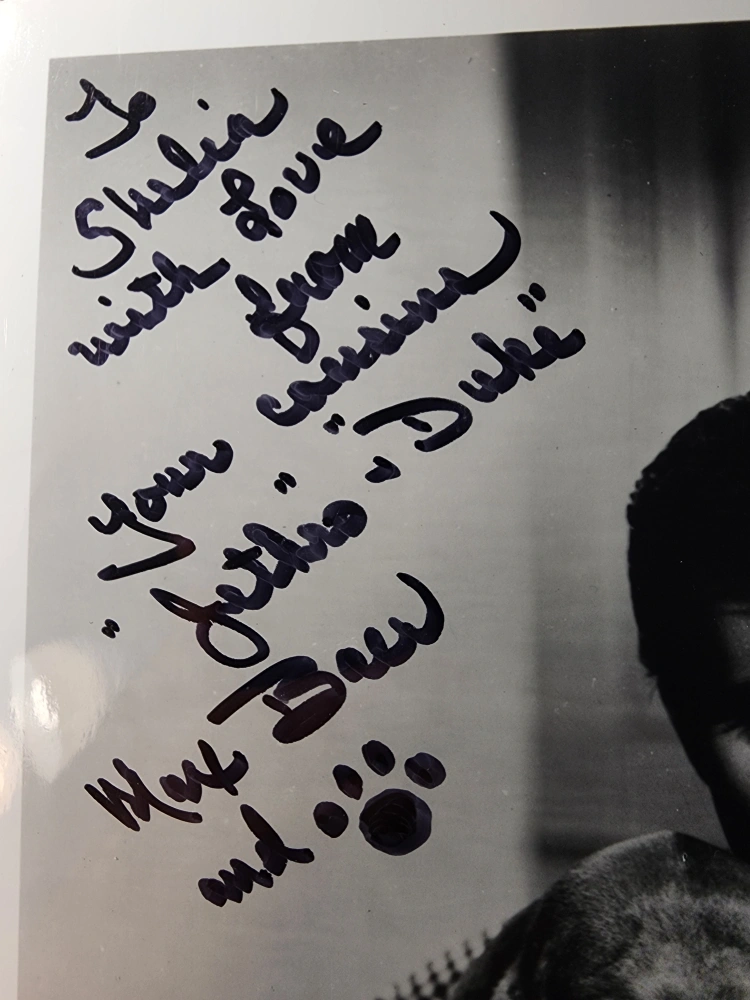 To
Shelia
with Love
from
Your cousins
"Jethro" & "Duke"
Max Baer
and